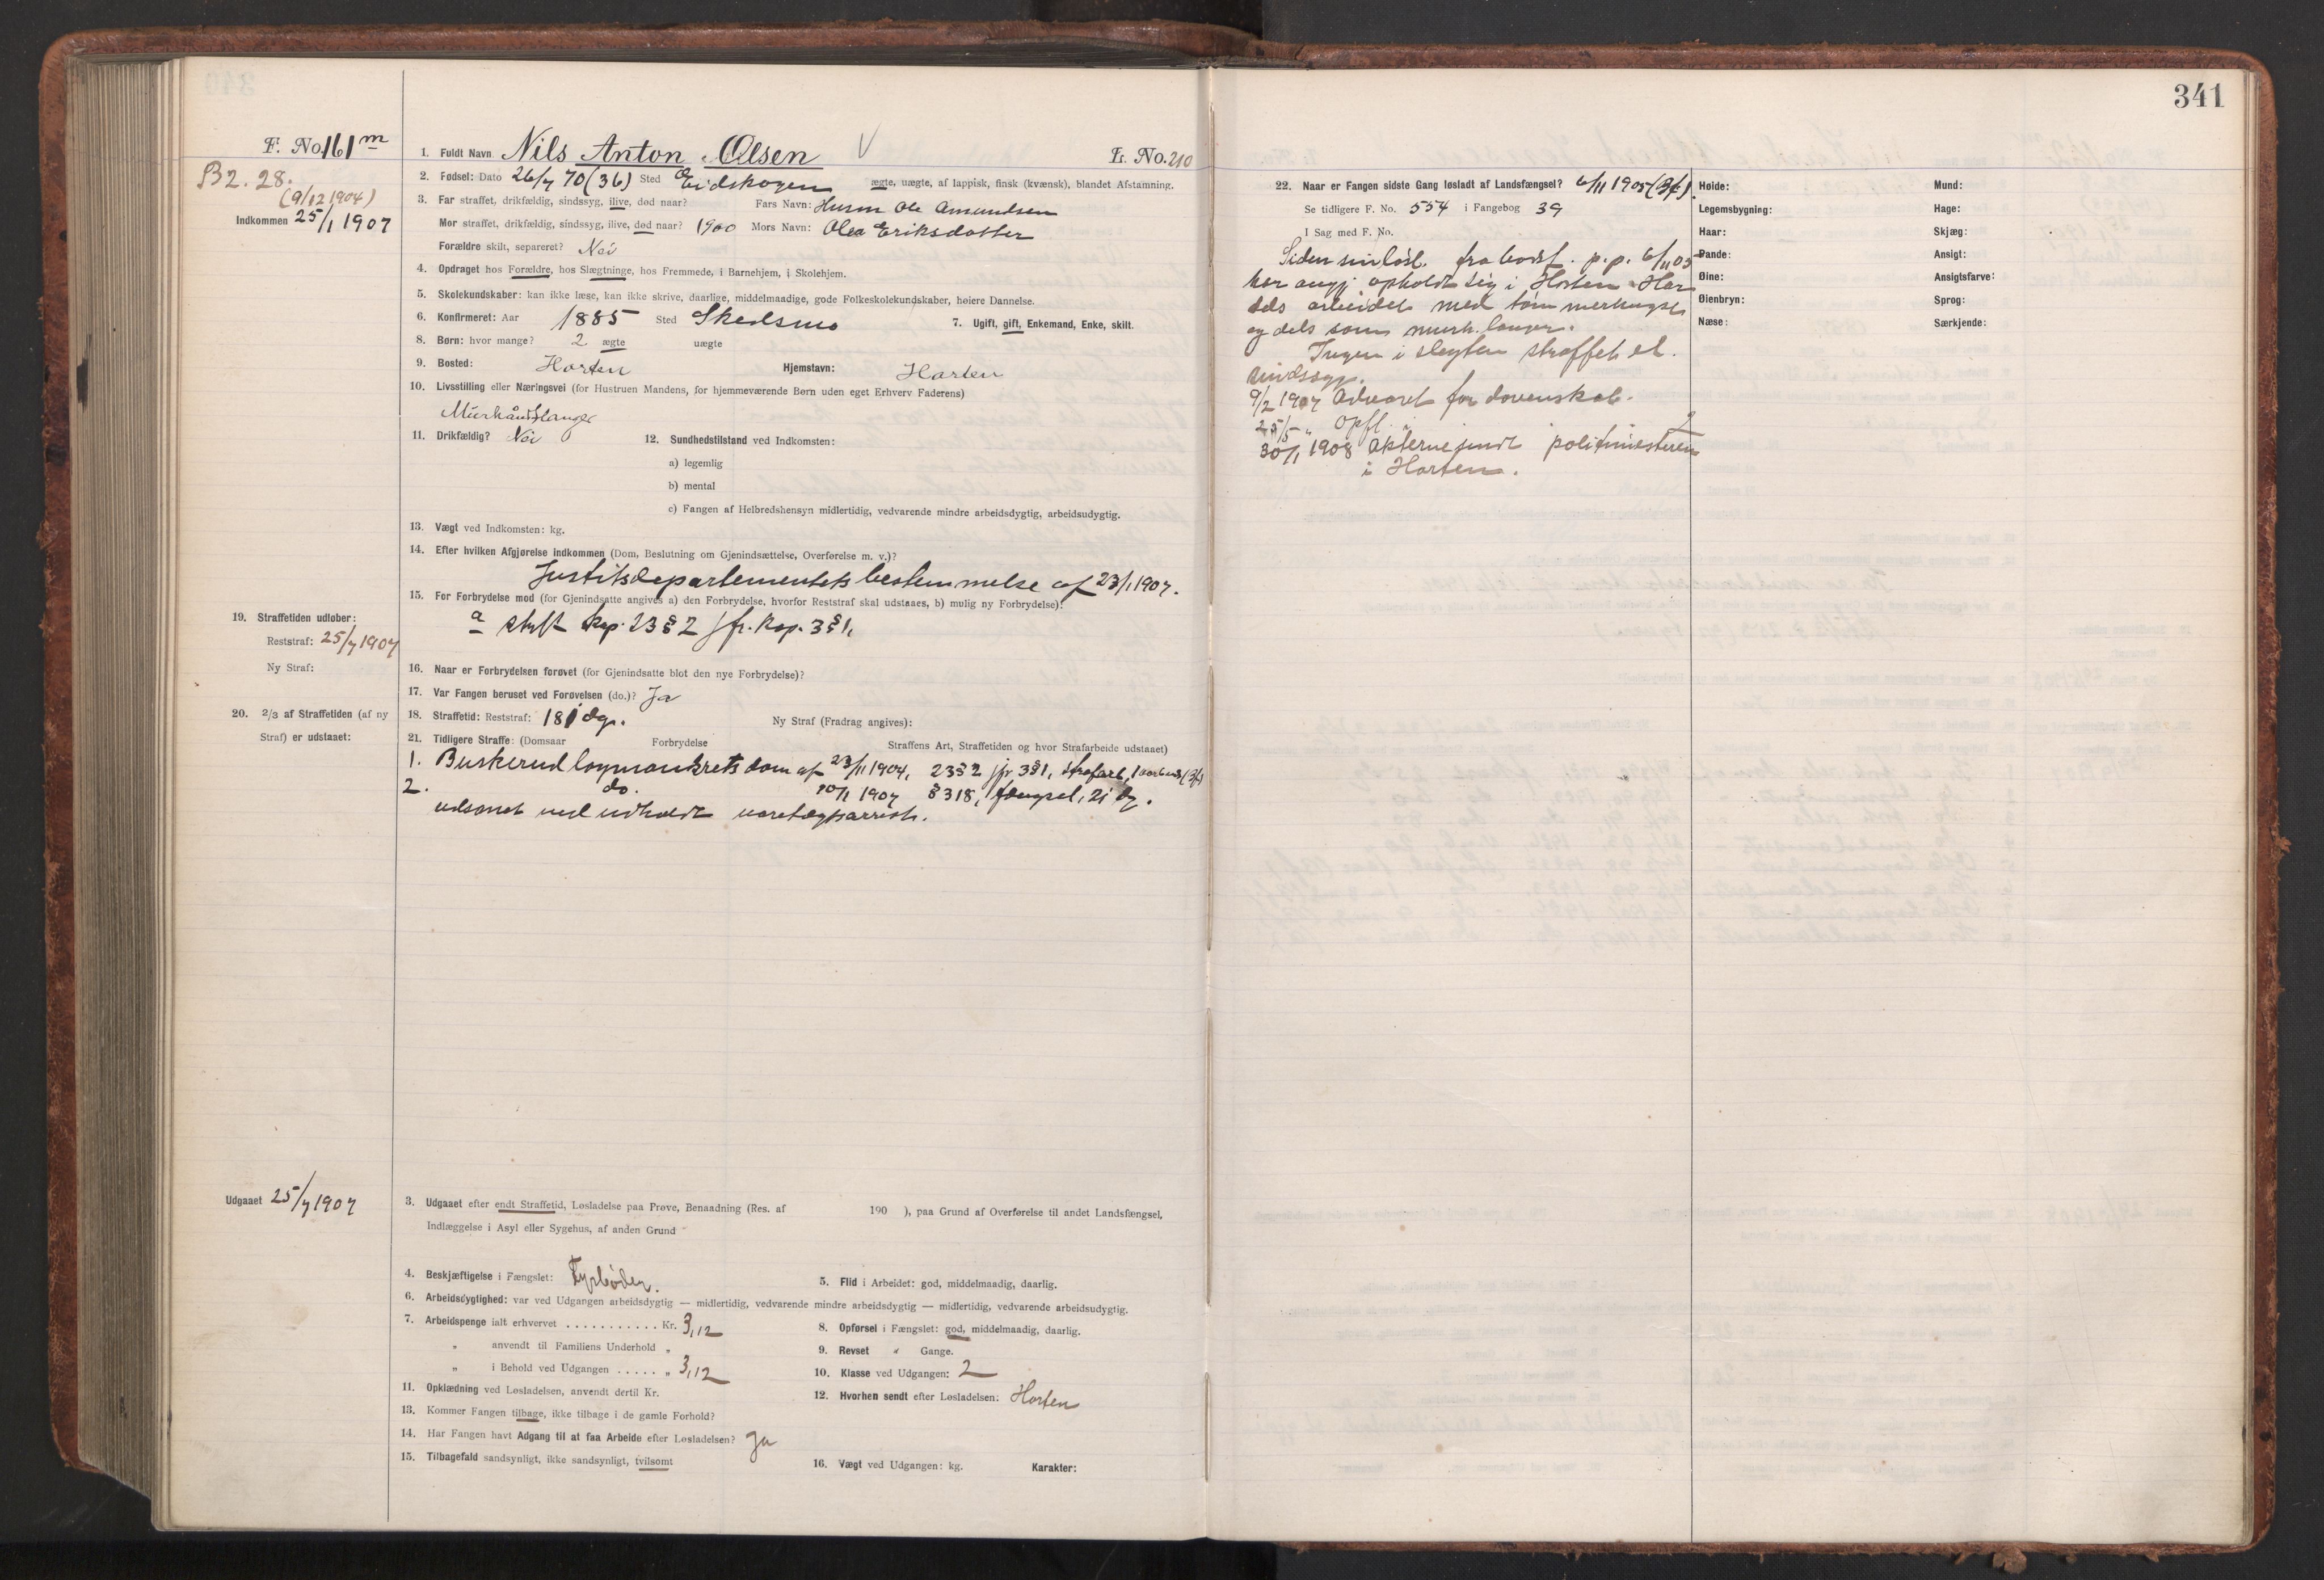 341
F. No. 161 m
B2. 28.
(9/12 1904)
Indkommen 25/1 1907
1. Fuldt Navn Nils Anton Olsen V L. No. 210
2. Fødsel: Dato 26/7 70 (36) Sted Eidskogen ægte, uægte, af lappisk, finsk (kvænsk), blandet Afstamning.
3. Far straffet, drikfældig, sindssyg, ilive, død naar? Fars Navn: Husm Ole Amundsen
Mor straffet, drikfældig, sindssyg, ilive, død naar? 1900 Mors Navn: Olea Eriksdatter
Forældre skilt, separeret? Nei
4. Opdraget hos Forældre, hos Slægtninge, hos Fremmede, i Barnehjem, i Skolehjem.
5. Skolekundskaber: kan ikke læse, kan ikke skrive, daarlige, middelmaadige, gode Folkeskolekundskaber, høiere Dannelse.
6. Konfirmeret: Aar 1885 Sted Skedsmo 7. Ugift, gift, Enkemand, Enke, skilt.
8. Børn: hvor mange? 2 ægte uægte
9. Bosted: Horten Hjemstavn: Horten
10. Livsstilling eller Næringsvei (for Hustruen Mandens, for hjemmeværende Børn uden eget Erhverv Faderens)
Murhåndlanger
11. Drikfældig? Nei 12. Sundhedstilstand ved Indkomsten:
a) legemlig
b) mental
c) Fangen af Helbredshensyn midlertidig, vedvarende mindre arbeidsdygtig, arbeidsudygtig.
13. Vægt ved Indkomsten: kg.
14. Efter hvilken Afgjørelse indkommen (Dom, Beslutning om Gjenindsættelse, Overførelse m. v.)?
Justitsdepartementets bestemmelse af 23/1 1907.
15. For Forbrydelse mod (for Gjenindsatte angives a) den Forbrydelse, hvorfor Reststraf skal udstaaes, b) mulig ny Forbrydelse)?
a styft kap. 23 § 2 jfr. kap. 3 § 1.
19. Straffetiden udløber:
Reststraf: 25/7 1907
Ny Straf:
16. Naar er Forbrydelsen forøvet (for Gjenindsatte blot den nye Forbrydelse)?
17. Var Fangen beruset ved Forøvelsen (do.)? Ja
20. 2/3 af Straffetiden (af ny
Straf) er udstaaet:
18. Straffetid: Reststraf: 181 dgr. Ny Straf (Fradrag angives):
21. Tidligere Straffe: (Domsaar Forbrydelse Straffens Art, Straffetiden og hvor Strafarbeide udstaaet)
1. Buskerud lagmandsrets dom af 23/11 1904, 23 § 2 jfr 3 § 1, strafarb, 1
2. do. 10/1 1907 § 318, fængsel, 21 dg.
udsonet ved udholdt varetægtsarrest.
Udgaaet 25/7 1907
3. Udgaaet efter endt Straffetid, Løsladelse paa Prøve, Benaadning (Res. af 190 ), paa Grund af Overførelse til andet Landsfængsel,
Indlæggelse i Asyl eller Sygehus, af anden Grund
4. Beskjæftigelse i Fængslet: Fyrbøder. 5. Flid i Arbeidet: god, middelmaadig, daarlig.
6. Arbeidsdygtighed: var ved Udgangen arbeidsdygtig — midlertidig, vedvarende mindre arbeidsdygtig — midlertidig, vedvarende arbeidsudygtig.
7. Arbeidspenge ialt erhvervet . . . . . . . . . . . Kr. 3,12 8. Opførsel i Fængslet: god, middelmaadig, daarlig.
" anvendt til Familiens Underhold " 9. Revset " Gange.
" i Behold ved Udgangen . . . . . " 3,12 10. Klasse ved Udgangen: 2
11. Opklædning ved Løsladelsen, anvendt dertil Kr. 12. Hvorhen sendt efter Løsladelsen: Horten
13. Kommer Fangen tilbage, ikke tilbage i de gamle Forhold?
14. Har Fangen havt Adgang til at faa Arbeide efter Løsladelsen? Ja
15. Tilbagefald sandsynligt, ikke sandsynligt, tvilsomt 16. Vægt ved Udgangen: kg. Karakter:
22. Naar er Fangen sidste Gang løsladt af Landsfængsel? 6/11 1905 (3/4).
Se tidligere F. No. 554 i Fangebog 39
I Sag med F. No.
Siden sin løsl. fra bodsf. p.p. 6/11 05
har angj opholdt sig i Horten. Har
dels arbeidet med tømmerhugst
og dels som murh.langer.
Ingen i slegten straffet el.
sindssyge.
9/2 1907 Advaret for dovenskab.
25/5 " Opfl. i 2
30/1 1908 Akterne sendt politimesteren
i Horten.
Høide: Mund:
Legemsbygning: Hage:
Haar: Skjæg:
Pande: Ansigt:
Øine: Ansigtsfarve:
Øienbryn: Sprog:
Næse: Særkjende: